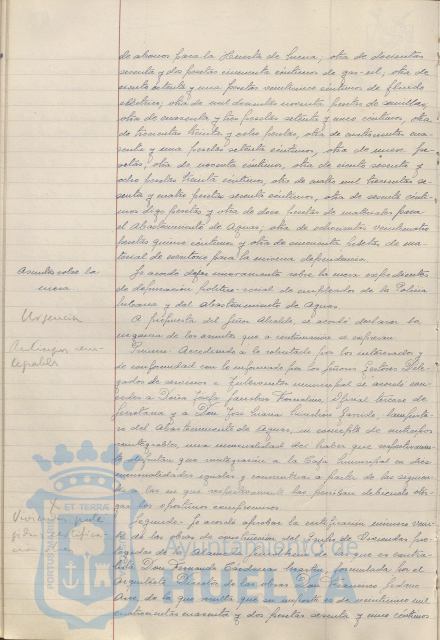 de abonos para la Huerta de Mena; otra de doscientas
sesenta y dos pesetas cincuenta céntimos de gas-oil; otra de
ciento setenta y una pesetas veinticinco céntimos de fluido
eléctrico; otra de mil doscientas noventa pesetas de semillas;
otra de cuarenta y tres pesetas setenta y cinco céntimos, otra
de trescientas treinta y ocho pesetas, otra de cuatrocientas cua-
renta y una pesetas setenta céntimos, otra de nueve pe-
setas, otra de noventa céntimos, otra de ciento sesenta y
ocho pesetas treinta céntimos, otra de cuatro mil trescientas se-
senta y cuatro pesetas sesenta céntimos, otra de sesenta cénti-
mos digo pesetas y otra de doce pesetas de materiales para
el Abastecimiento de Aguas; otra de ochocientas veinticuatro
pesetas quince céntimos y otra de cincuenta pesetas de ma-
terial de escritorio para la misma dependencia.
Asuntos sobre la
mesa
Se acordó dejar nuevamente sobre la mesa expedientes
de depuración político-social de empleados de la Policía
Urbana y del Abastecimiento de Aguas.
Urgencia
A propuesta del Señor Alcalde, se acordó declarar la
urgencia de los asuntos que a continuación se expresan
Anticipos rein-
tegrables
Primero: Accediendo a lo solicitado por los interesados y
de conformidad con lo informado por los Señores Gestores Dele-
gados de servicios e Interventor municipal se acordó con-
ceder a Doña Josefa Oficial tercero de
Secretaría y a Don José
del Abastecimiento de Aguas, en concepto de anticipo
reintegrable, una mensualidad del haber que respectivamen-
te disfrutan que reintegrarán a la Caja Municipal en diez
mensualidades iguales y consecutivas a partir de las siguien-
tes a las en que respectivamente las perciban debiendo otor-
gar los oportunos compromisos.
Viviendas prote-
gidas
Segundo: Se acordó aprobar la certificación número
de las obras de construcción del Grupo de Viviendas pro-
tegidas de la Alameda de que es contra-
tista Don Fernando formulada por el
Arquitecto Director de las obras Don Francisco Sedano
Arce, de la que resulta que su importe es de veintiuna mil
cuatrocientas cuarenta y dos pesetas sesenta y cinco céntimos
Ayuntamiento de
HUELVA